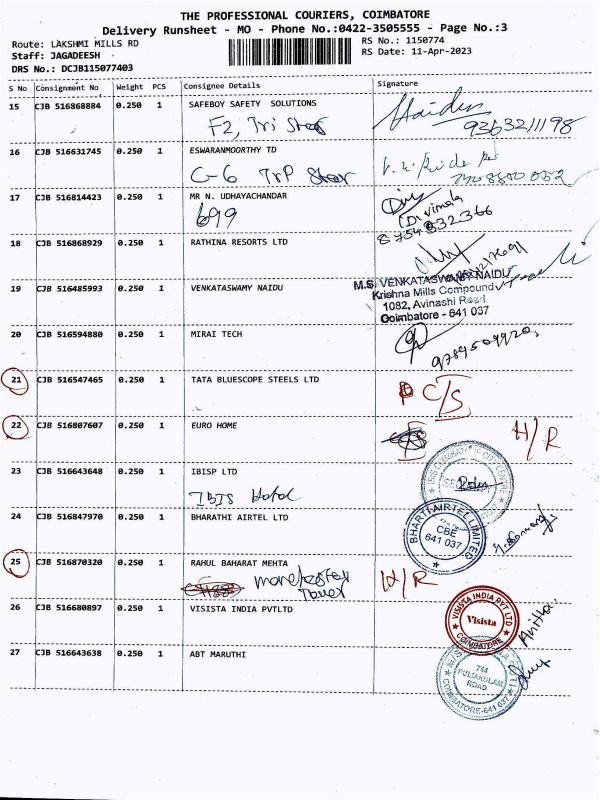 THE PROFESSIONAL COURIERS, COIMBATORE
Delivery Runsheet - MO - Phone No.:0422-3505555 - Page No.:3
Route: LAKSHMI MILLS RD
Staff: JAGADEESH
DRS No.: DCJB115077403
RS No.: 1150774
RS Date: 11-Apr-2023
S No Consignment No Weight PCS Consignee Details Signature
15 CJB 516868884 0.250 1 SAFEBOY SAFETY SOLUTIONS
F2, Tri Star
9363211198
16 CJB 516631745 0.250 1 ESWARANMOORTHY TD
17 CJB 516814423 0.250 1 MR N. UDHAYACHANDAR
699
(Divimala
8754832366
18 CJB 516868929 0.250 1 RATHINA RESORTS LTD
19 CJB 516485993 0.250 1 VENKATASWAMY NAIDU
M.S. VENKATASWAMY NAIDU
Krishna Mills Compound
1082, Avinashi Road
Coimbatore - 641 037
20 CJB 516594880 0.250 1 MIRAI TECH
21 CJB 516547465 0.250 1 TATA BLUESCOPE STEELS LTD
C/S
22 CJB 516807607 0.250 1 EURO HOME
H/R
23 CJB 516643648 0.250 1 IBISP LTD
IBIS Hotel
24 CJB 516847970 0.250 1 BHARATHI AIRTEL LTD
BHARTI AIRTEL LIMITED
CBE
641 037
25 CJB 516870320 0.250 1 RAHUL BAHARAT MEHTA
manchester
Tower
H/R
26 CJB 516680897 0.250 1 VISISTA INDIA PVTLTD
VISISTA INDIA PVT LTD
Visista
COIMBATORE
27 CJB 516643638 0.250 1 ABT MARUTHI
744
PULIAKULAM
ROAD
COIMBATORE-641 037